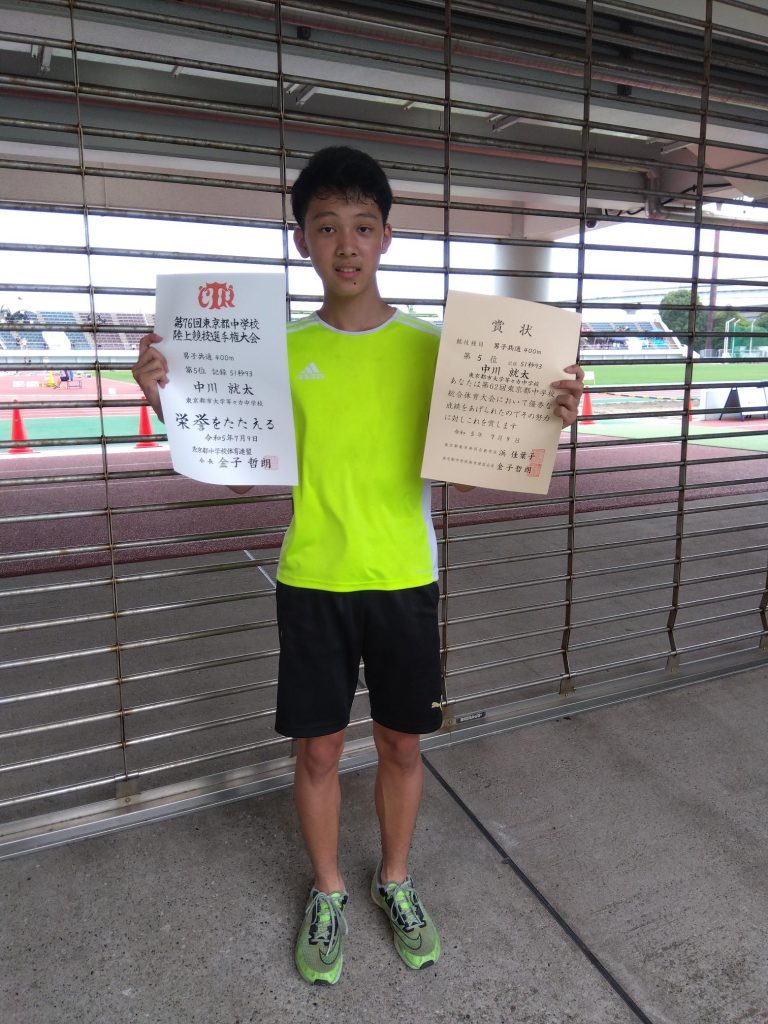 第76回東京都中学校
陸上競技選手権大会
男子共通 400m
第5位 記録 51秒93
中川 就太
東京都市大学等々力中学校
栄誉をたたえる
令和5年7月9日
東京都中学校体育連盟
会長 金子 哲朗
賞状
競技種目 男子共通 400m
第 5 位 記録 51秒93
中川 就太
東京都市大学等々力中学校
あなたは第62回東京都中学校
総合体育大会において優秀な
成績をあげられたのでその努力
に対しこれを賞します
令和 5 年 7月 9 日
浜 佳葉子
金子 哲朗
adidas